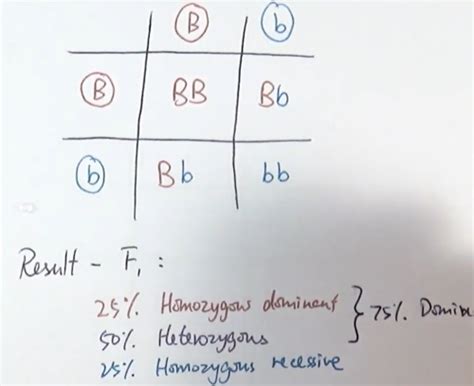 B b
B BB Bb
b Bb bb
Result - F₁ :
25% Homozygous dominent } 75%. Domin
50% Heterozygous
25% Homozygous recessive